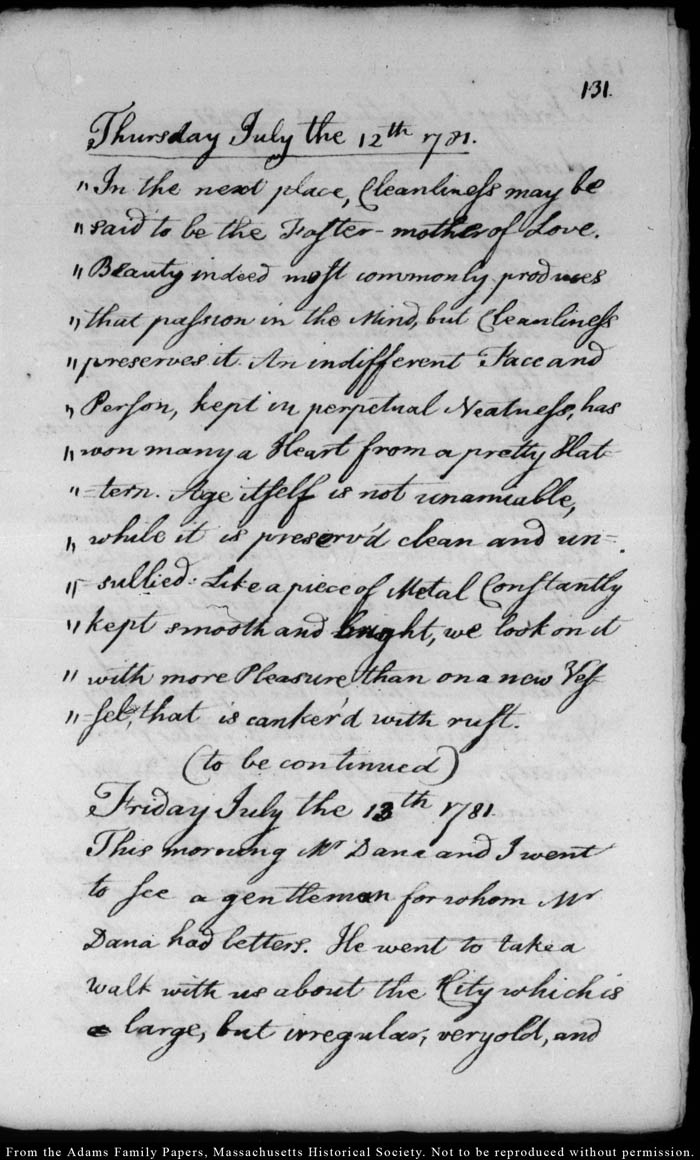 131.
Thursday July the 12th 1781.
"In the next place, Cleanliness may be
"said to be the Foster-mother of Love.
"Beauty indeed most commonly produces
"that passion in the Mind, but Cleanliness
"preserves it. An indifferent Face and
"Person, kept in perpetual Neatness, has
"won many a Heart from a pretty Slat-
"=tern. Age itself is not unamiable,
"while it is preserv'd clean and un=
"sullied: Like a piece of Metal Constantly
"kept smooth and bright, we look on it
"with more Pleasure than on a new Ves-
"=sel, that is canker'd with rust.
(to be continued)
Friday July the 13th 1781.
This morning Mr Dana and I went
to see a gentleman for whom Mr
Dana had letters. He went to take a
walk with us about the City which is
large, but irregular, very old, and
From the Adams Family Papers, Massachusetts Historical Society. Not to be reproduced without permission.